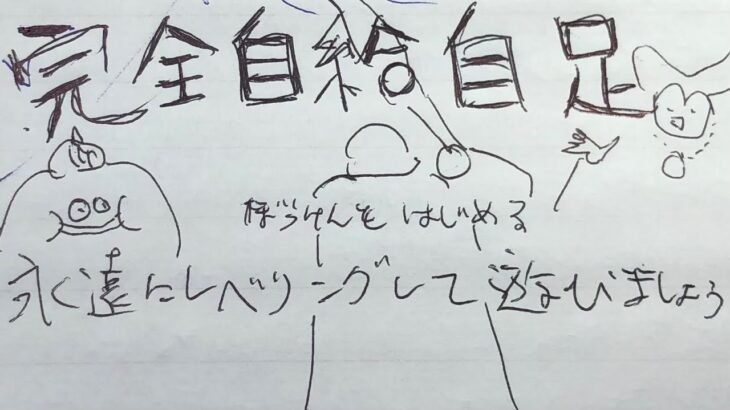 完全自給自足
ぼうけんをはじめる
永遠にレベリングして遊びましょう